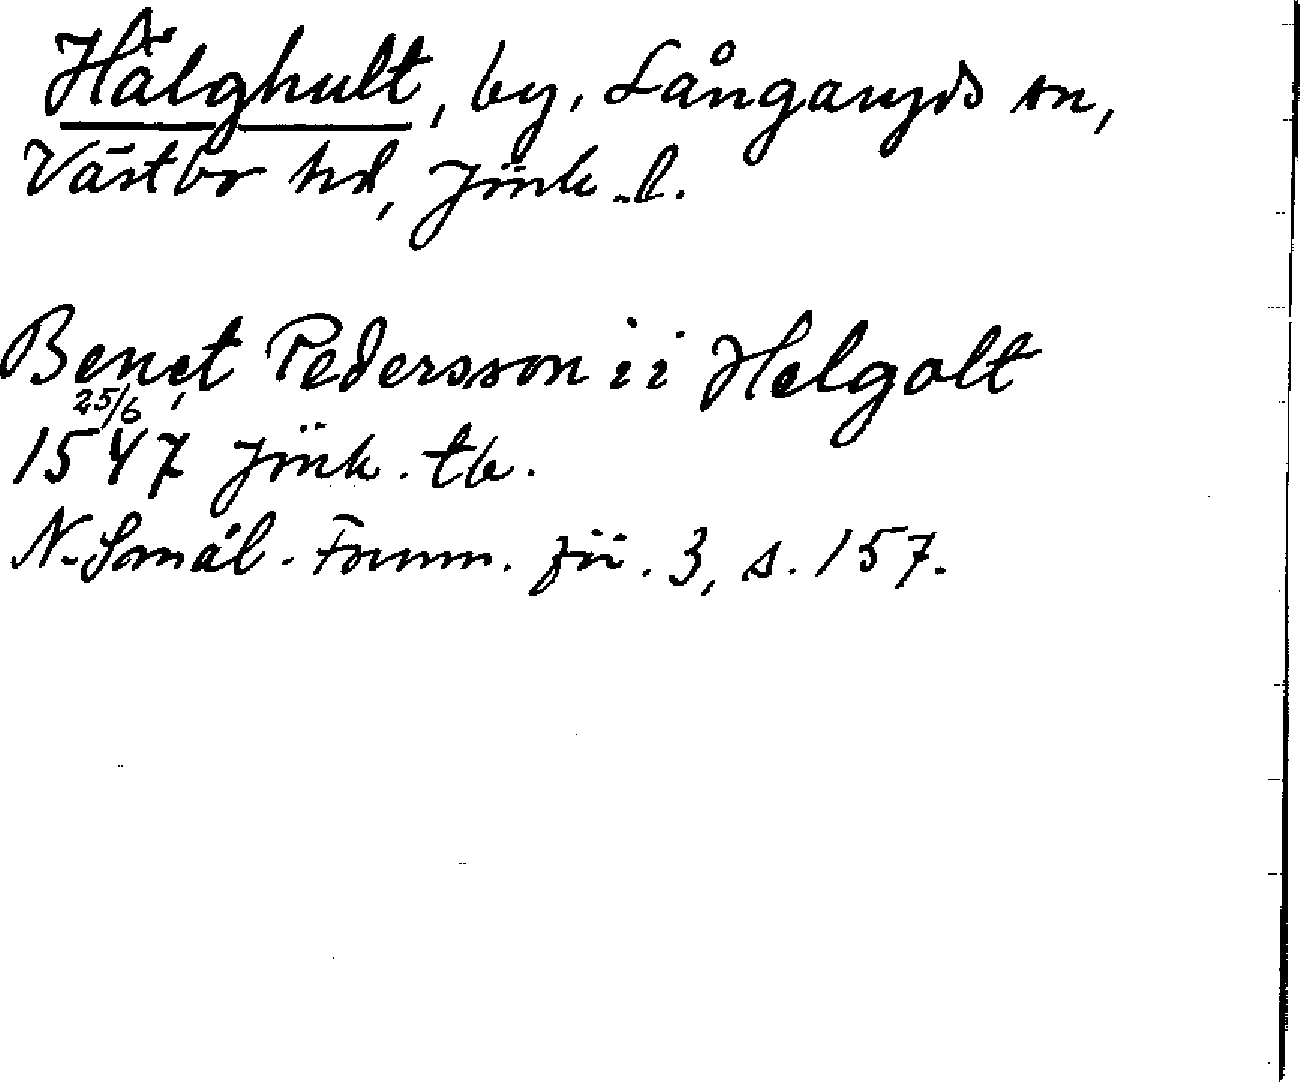 Hälghult, by, Långaryds sn,
Västbo hd, Jönk. l.
Benęt Pedersson i i Helgolt
25/6
1547 Jönk. tb.
N. Smål. Fornm. för. 3, s. 157.